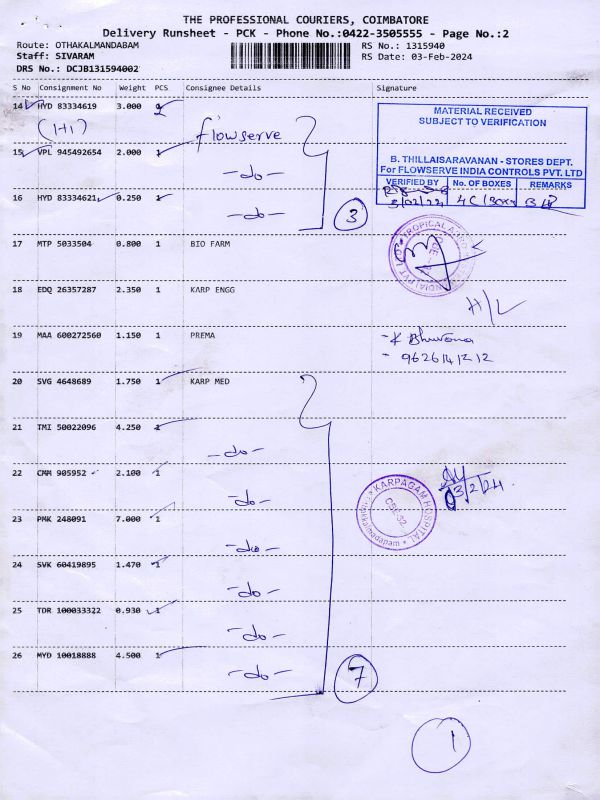 THE PROFESSIONAL COURIERS, COIMBATORE
Delivery Runsheet - PCK - Phone No.:0422-3505555 - Page No.:2
Route: OTHAKALMANDABAM
RS No.: 1315940
Staff: SIVARAM
RS Date: 03-Feb-2024
DRS No.: DCJB131594002
S No Consignment No Weight PCS Consignee Details Signature
14 HYD 83334619 3.000 2 flowserve
(H1)
MATERIAL RECEIVED
SUBJECT TO VERIFICATION
15 VPL 945492654 2.000 1 -do-
B. THILLAISARAVANAN - STORES DEPT.
For FLOWSERVE INDIA CONTROLS PVT. LTD
VERIFIED BY No. OF BOXES REMARKS
16 HYD 83334621 0.250 1 -do-
3/02/24 4C/Box
3
17 MTP 5033504 0.800 1 BIO FARM
TROPICAL
18 EDQ 26357287 2.350 1 KARP ENGG
H/L
19 MAA 600272560 1.150 1 PREMA
- K Bhuvana
- 9626141212
20 SVG 4648689 1.750 1 KARP MED
21 TMI 50022096 4.250 1 -do-
22 CMM 905952 2.100 1 -do-
3/2/24
KARPAGAM HOSPITAL
CBE-32
Othakkalmandapam
23 PMK 248091 7.000 1 -do-
24 SVK 60419895 1.470 1 -do-
25 TDR 100033322 0.930 1 -do-
26 MYD 10018888 4.500 1 -do-
7
1